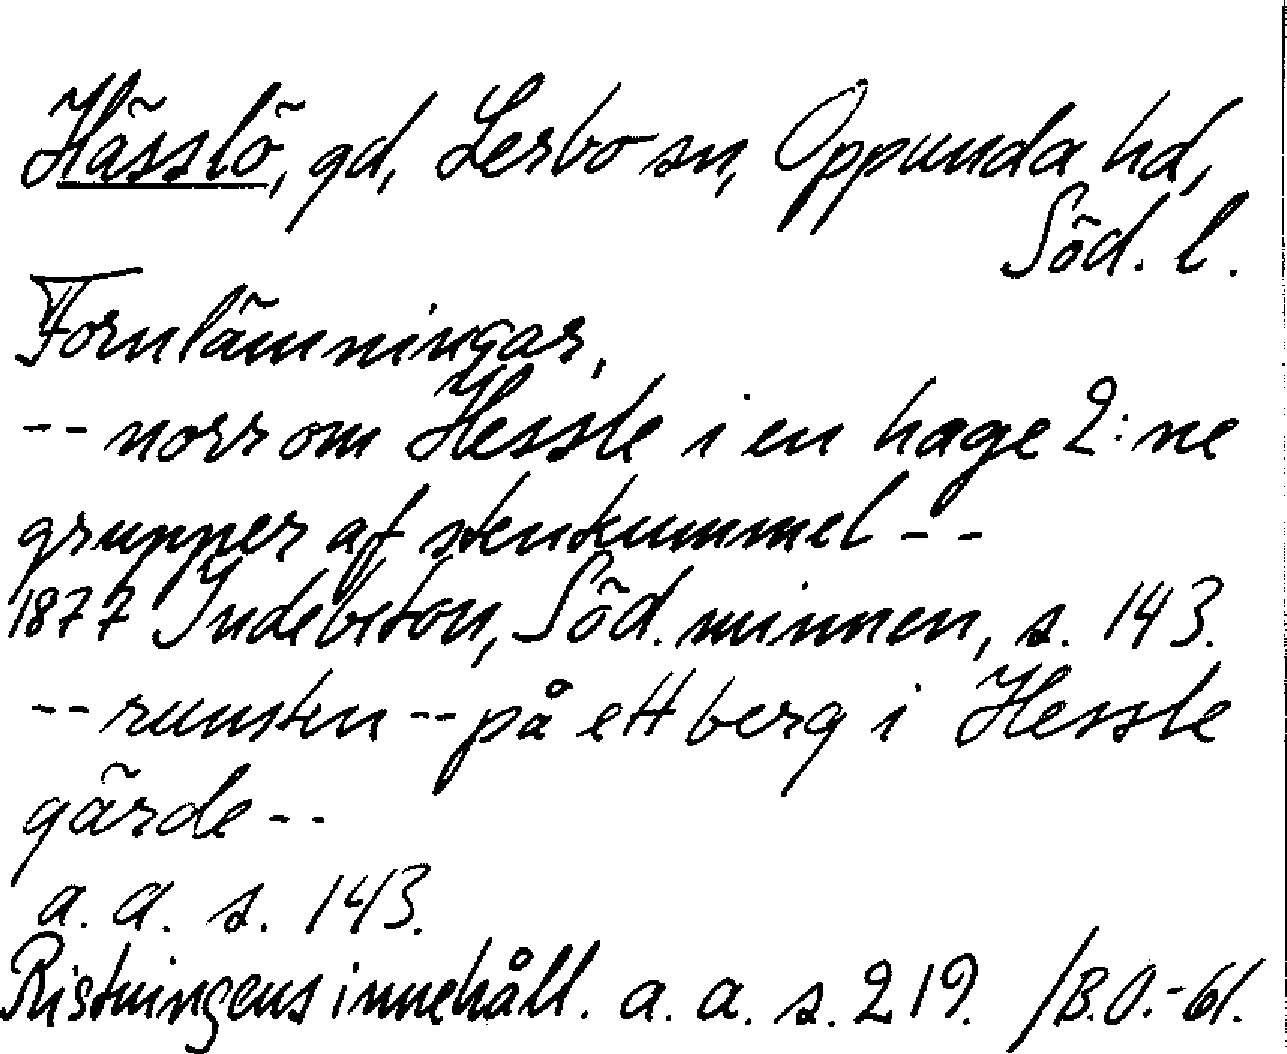 Hässlö, gd, Lerbo sn, Oppunda hd,
Söd. l.
Fornlämningar.
-- norr om Hessle i en hage 2:ne
grupper af stenkummel --
1877 Indebetou, Söd. minnen, s. 143.
-- runsten -- på ett berg i Hessle
gärde --
a. a. s. 143.
Ristningens innehåll. a. a. s. 219. /B.O.-61.